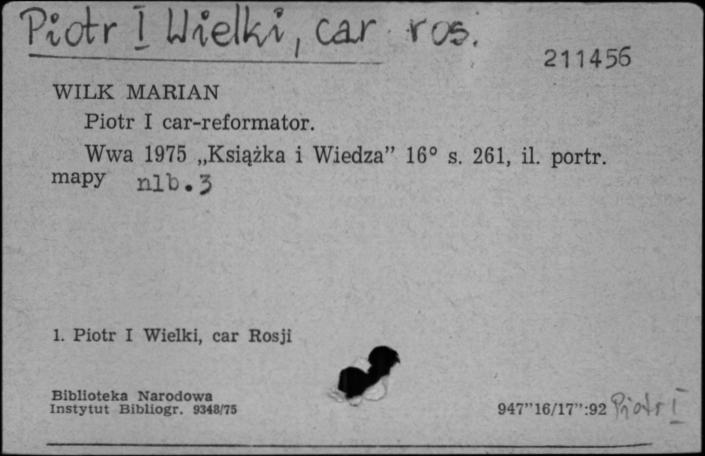 Piotr I Wielki, car ros.
211456
WILK MARIAN
Piotr I car-reformator.
Wwa 1975 „Książka i Wiedza” 16° s. 261, il. portr.
mapy nlb.3
1. Piotr I Wielki, car Rosji
Biblioteka Narodowa
Instytut Bibliogr. 9348/75
947”16/17”:92 Piotr I